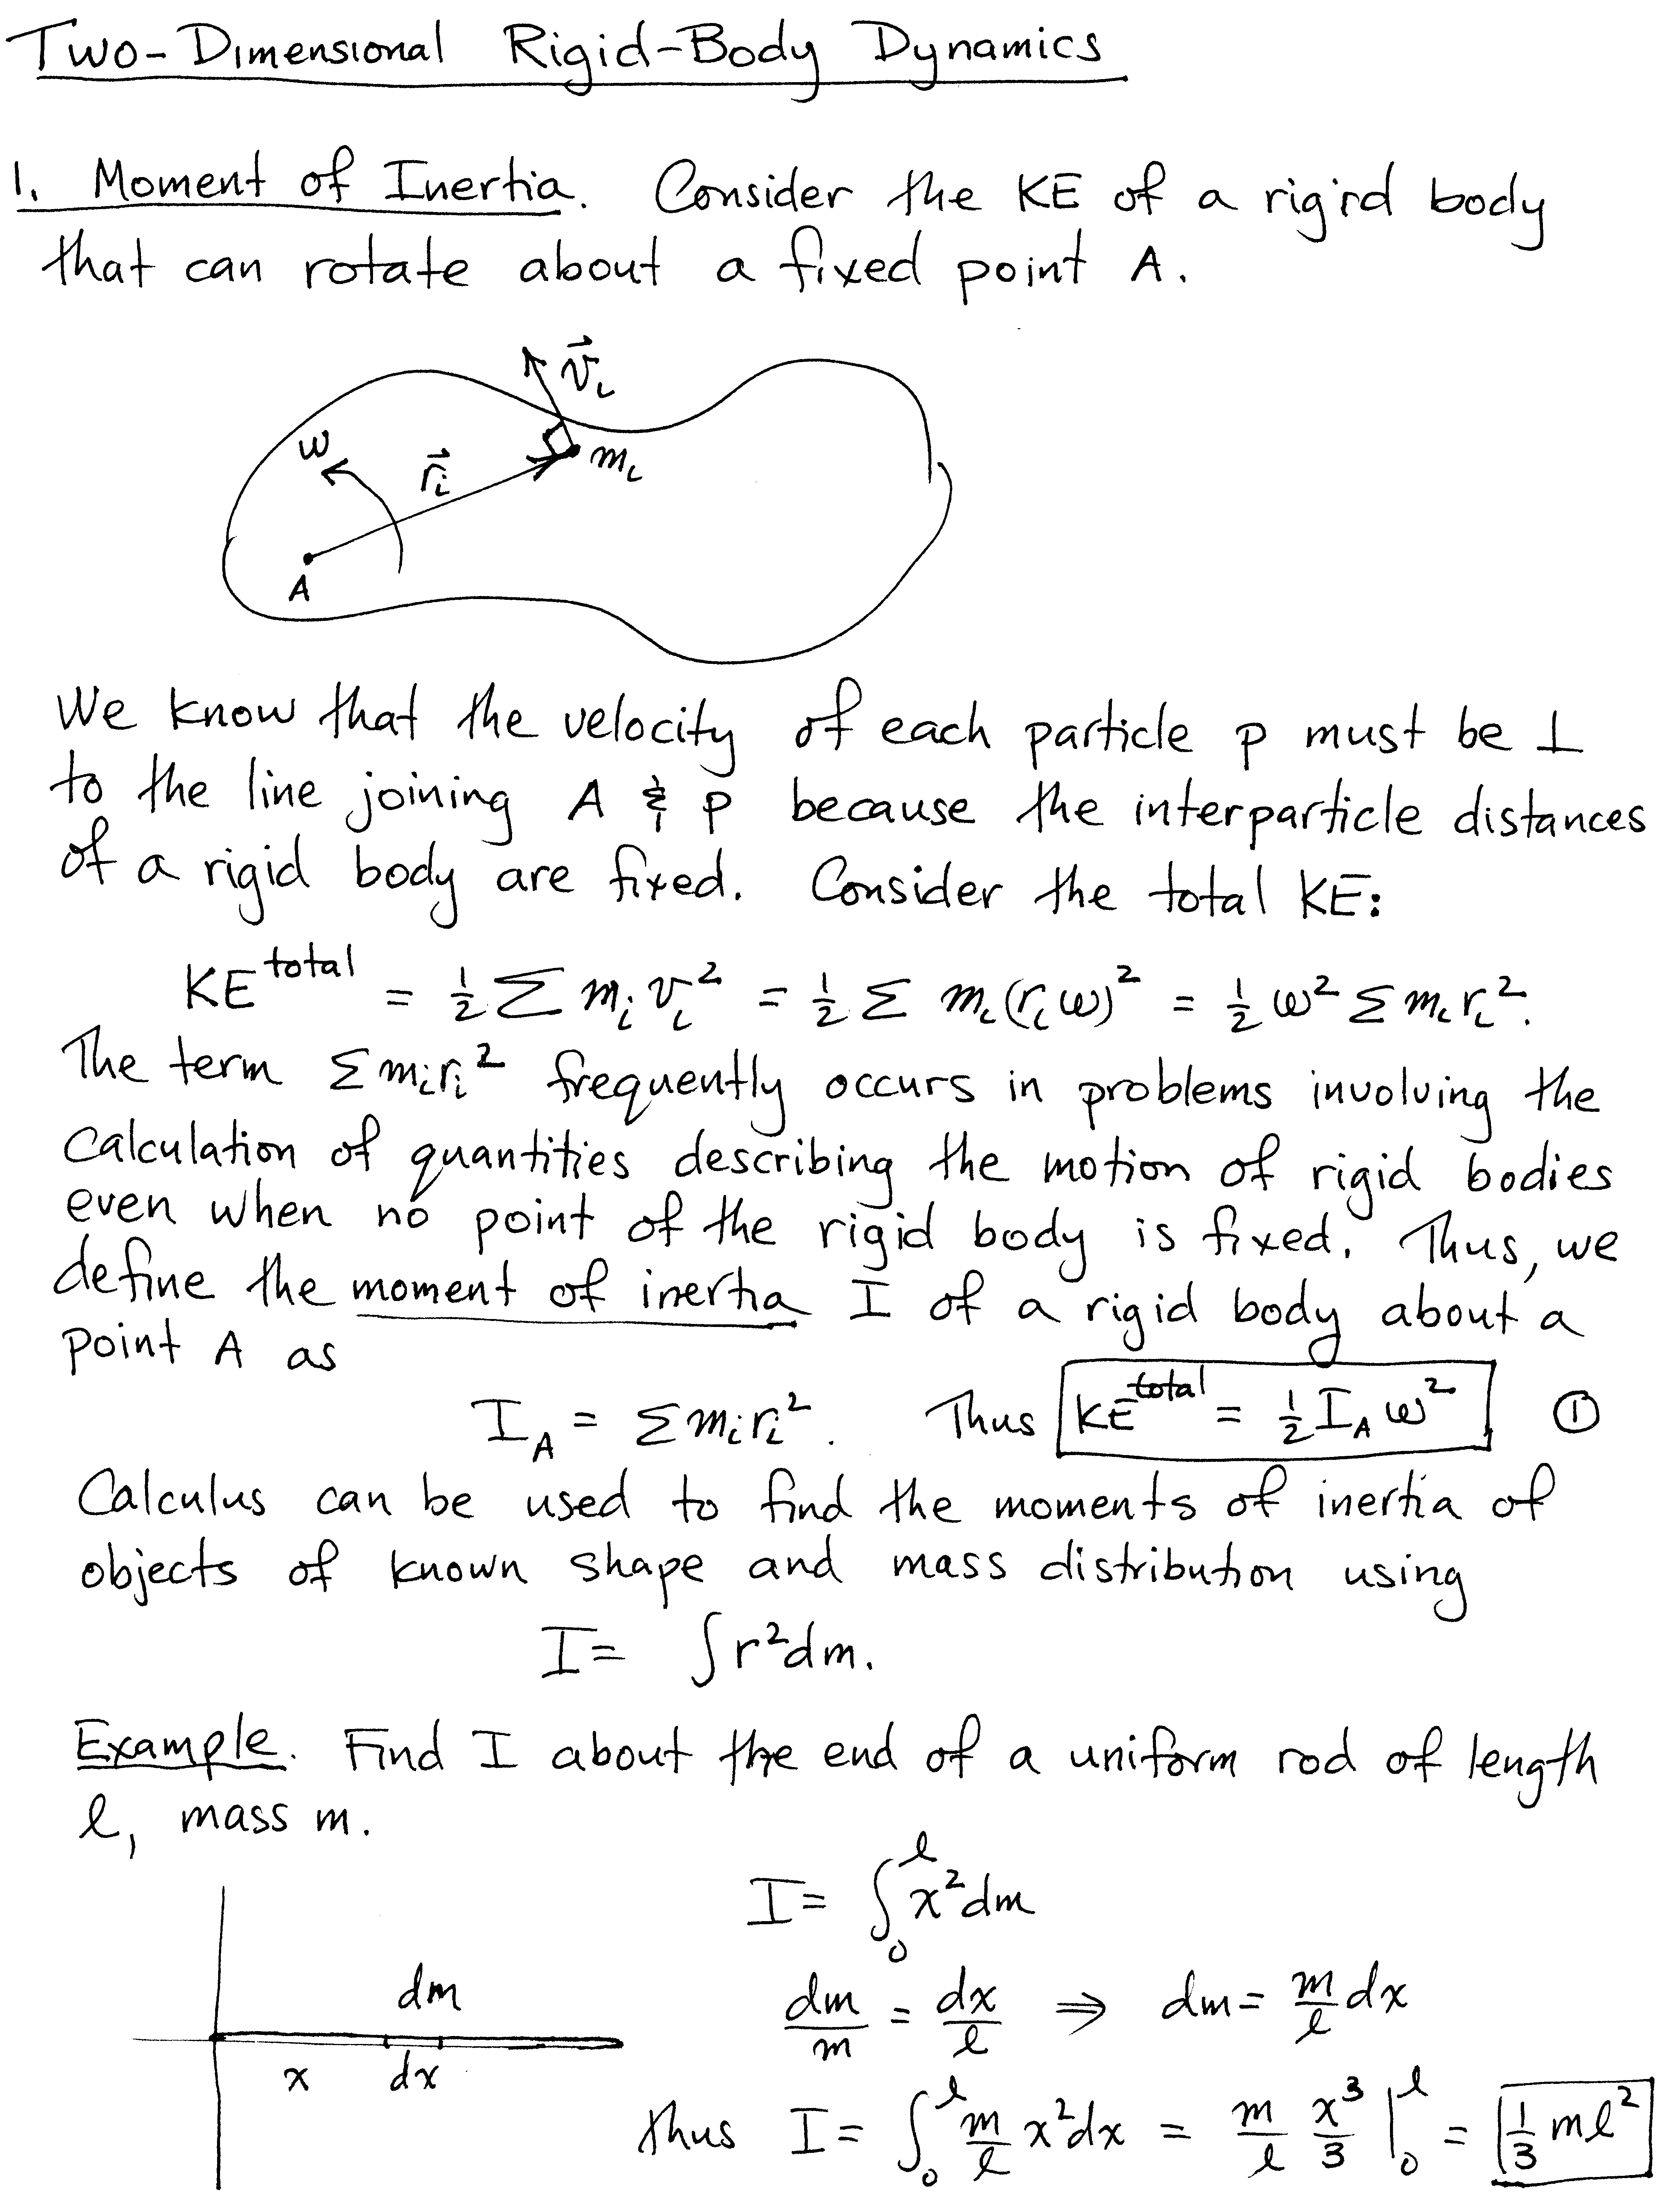 Two-Dimensional Rigid-Body Dynamics
1. Moment of Inertia. Consider the KE of a rigid body
that can rotate about a fixed point A.
v⃗ᵢ
ω
r⃗ᵢ
mᵢ
A
We know that the velocity of each particle p must be ⊥
to the line joining A & p because the interparticle distances
of a rigid body are fixed. Consider the total KE:
KE^total = ½ Σ mᵢ vᵢ² = ½ Σ mᵢ (rᵢ ω)² = ½ ω² Σ mᵢ rᵢ².
The term Σ mᵢ rᵢ² frequently occurs in problems involving the
calculation of quantities describing the motion of rigid bodies
even when no point of the rigid body is fixed. Thus, we
define the moment of inertia I of a rigid body about a
point A as
I_A = Σ mᵢ rᵢ². Thus KE^total = ½ I_A ω² ①
Calculus can be used to find the moments of inertia of
objects of known shape and mass distribution using
I = ∫ r² dm.
Example. Find I about the end of a uniform rod of length
ℓ, mass m.
I = ∫₀^ℓ x² dm
dm
x dx
dm/m = dx/ℓ ⇒ dm = m/ℓ dx
thus I = ∫₀^ℓ m/ℓ x² dx = m/ℓ x³/3 |₀^ℓ = 1/3 mℓ²